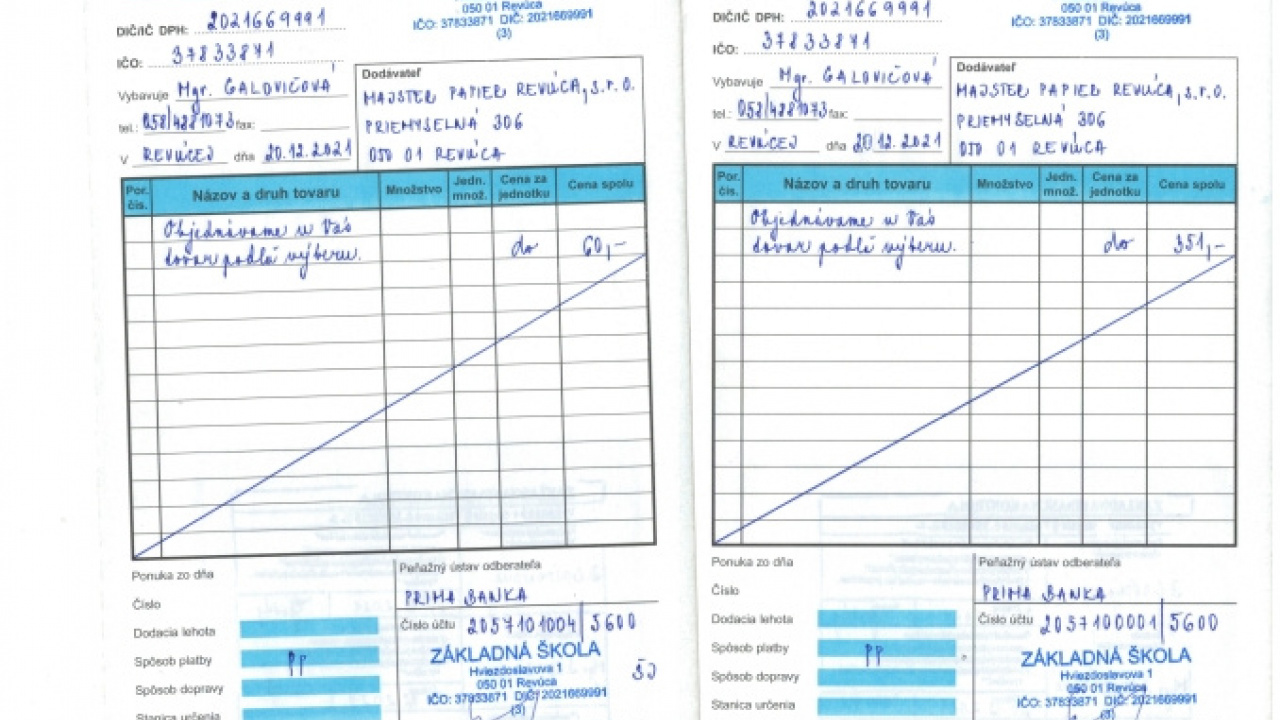 DIČ/IČ DPH: 2021669991
050 01 Revúca
IČO: 37833871 DIČ: 2021669991
(3)
IČO: 37833871
Vybavuje Mgr. GALOVIČOVÁ
tel.: 058/4881073 fax:
V REVÚCEJ dňa 20.12.2021
Dodávateľ
MAJSTER PAPIER REVÚCA, s.r.o.
PRIEMYSELNÁ 306
050 01 REVÚCA
Por. čís. Názov a druh tovaru Množstvo Jedn. množ. Cena za jednotku Cena spolu
Objednávame u Vás
tovar podľa výberu. do 60,-
Ponuka zo dňa
Číslo
Dodacia lehota
Spôsob platby PP
Spôsob dopravy
Stanica určenia
Peňažný ústav odberateľa
PRIMA BANKA
Číslo účtu 2057101004 | 5600
ZÁKLADNÁ ŠKOLA
Hviezdoslavova 1
050 01 Revúca
IČO: 37833871 DIČ: 2021669991
(3)
DIČ/IČ DPH: 2021669991
050 01 Revúca
IČO: 37833871 DIČ: 2021669991
(3)
IČO: 37833871
Vybavuje Mgr. GALOVIČOVÁ
tel.: 058/4881073 fax:
V REVÚCEJ dňa 20.12.2021
Dodávateľ
MAJSTER PAPIER REVÚCA, s.r.o.
PRIEMYSELNÁ 306
050 01 REVÚCA
Por. čís. Názov a druh tovaru Množstvo Jedn. množ. Cena za jednotku Cena spolu
Objednávame u Vás
tovar podľa výberu. do 351,-
Ponuka zo dňa
Číslo
Dodacia lehota
Spôsob platby PP
Spôsob dopravy
Stanica určenia
Peňažný ústav odberateľa
PRIMA BANKA
Číslo účtu 2057100001 | 5600
ZÁKLADNÁ ŠKOLA
Hviezdoslavova 1
050 01 Revúca
IČO: 37833871 DIČ: 2021669991
(3)